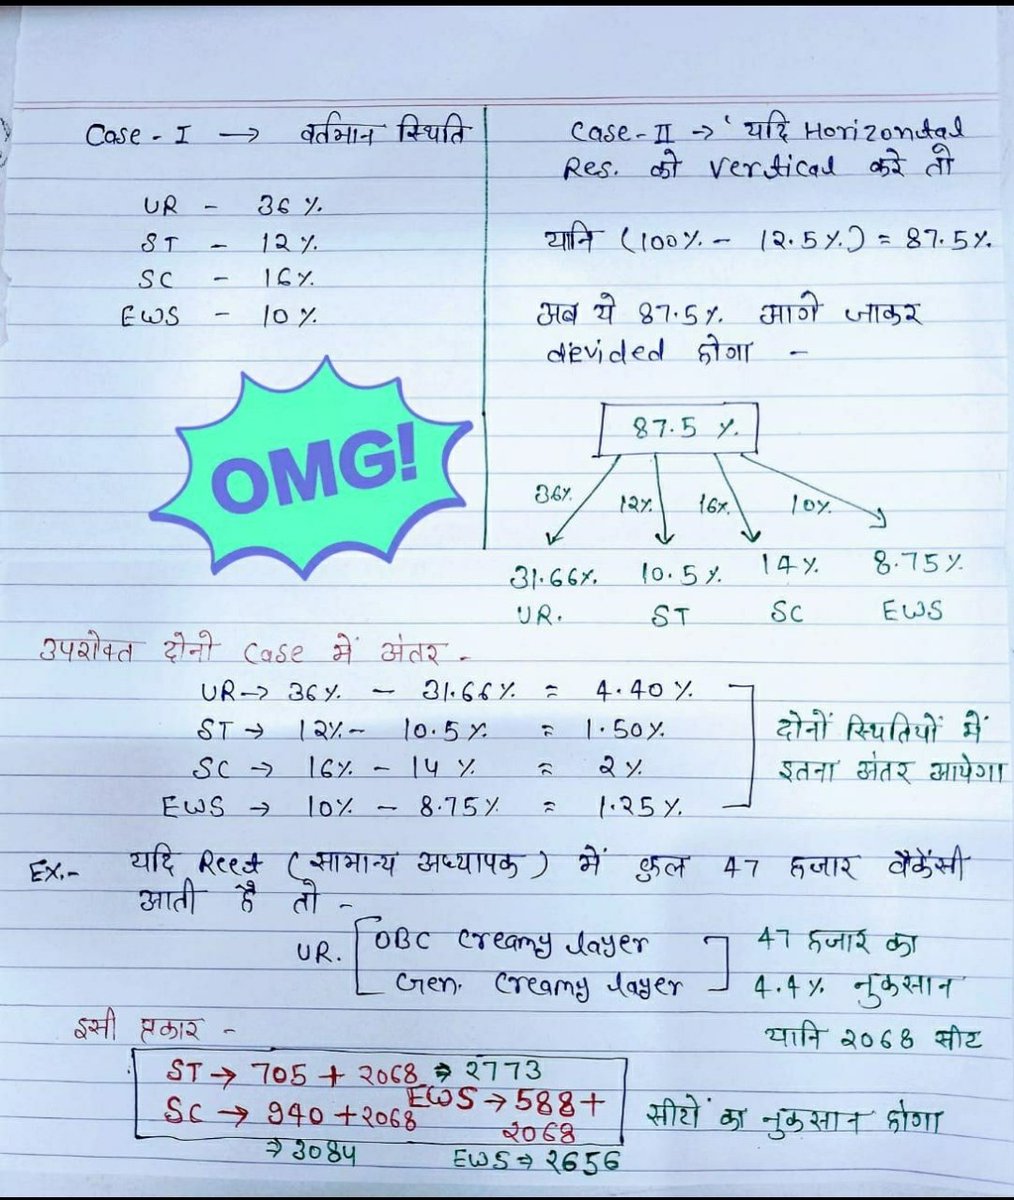 Case-I → वर्तमान स्थिति
UR - 36 %
ST - 12%
SC - 16%
EWS - 10 %
OMG!
Case-II → ' यदि Horizontal
Res. को Vertical करे तो
यानि (100% - 12.5%) = 87.5%
अब ये 87.5% आगे जाकर
devided होगा -
87.5 %
36% 12% 16% 10%
31.66% 10.5% 14% 8.75%
UR. ST SC EWS
उपरोक्त दोनो Case में अंतर -
UR → 36% - 31.66% = 4.40%
ST → 12% - 10.5% = 1.50%
SC → 16% - 14 % = 2%
EWS → 10% - 8.75% = 1.25%
दोनों स्थितियों में
इतना अंतर आयेगा
Ex.- यदि Reet (सामान्य अध्यापक) में कुल 47 हजार वैकेंसी
आती है तो -
UR. OBC Creamy layer
Gen. Creamy layer
47 हजार का
4.4% नुकसान
यानि 2068 सीट
इसी प्रकार -
ST → 705 + 2068 ⇒ 2773
SC → 940 + 2068
⇒ 3084
EWS → 588 +
2068
EWS ⇒ 2656
सीटों का नुकसान होगा